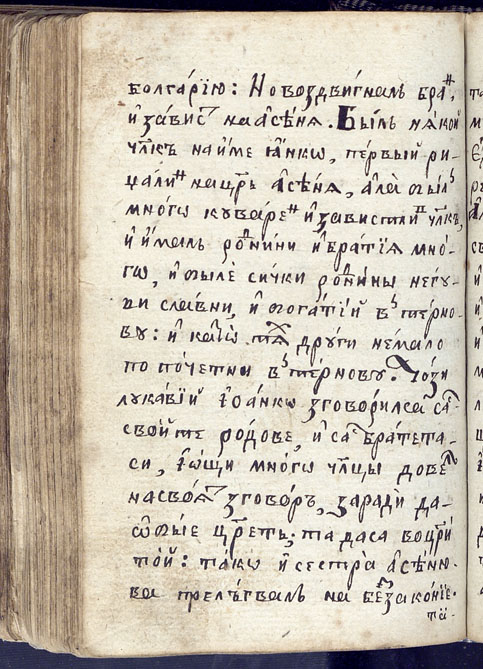 болгарїю: Но воздвигналъ браⷩ҇,
и҆ зависⷮ на а҆сѣнꙗ. Былъ нѧкои
чл҃къ на име ꙗ҆нкѡ, первый ри-
цалиⷩ на цр҃ъ а҆сѣнꙗ, а҆ла былъ
многѡ куꙗреⷩ и҆ завистлиⷡ чл҃къ,
и҆ и҆малъ роⷣнини и҆ братїꙗ мно-
гѡ, и҆ были сички роⷣнины негу-
ви славни, и҆ богатїй въ терно-
ву: и҆ катѡ тꙗⷯ други немало
по почетни въ терново. Този
лукавїй І҆ѡанкѡ зговорилса са
свойте родове, и҆ са братета-
си, і҆ ѡ҆щи многѡ чл҃цы довеⷧ
на своꙗ зговоръ, заради да-
ѿбие цр҃етъ; та даса воцр҃и
той: такѡ и҆ сестра а҆сѣню-
ва прелъгвалъ на беꙁаконїе.
та-